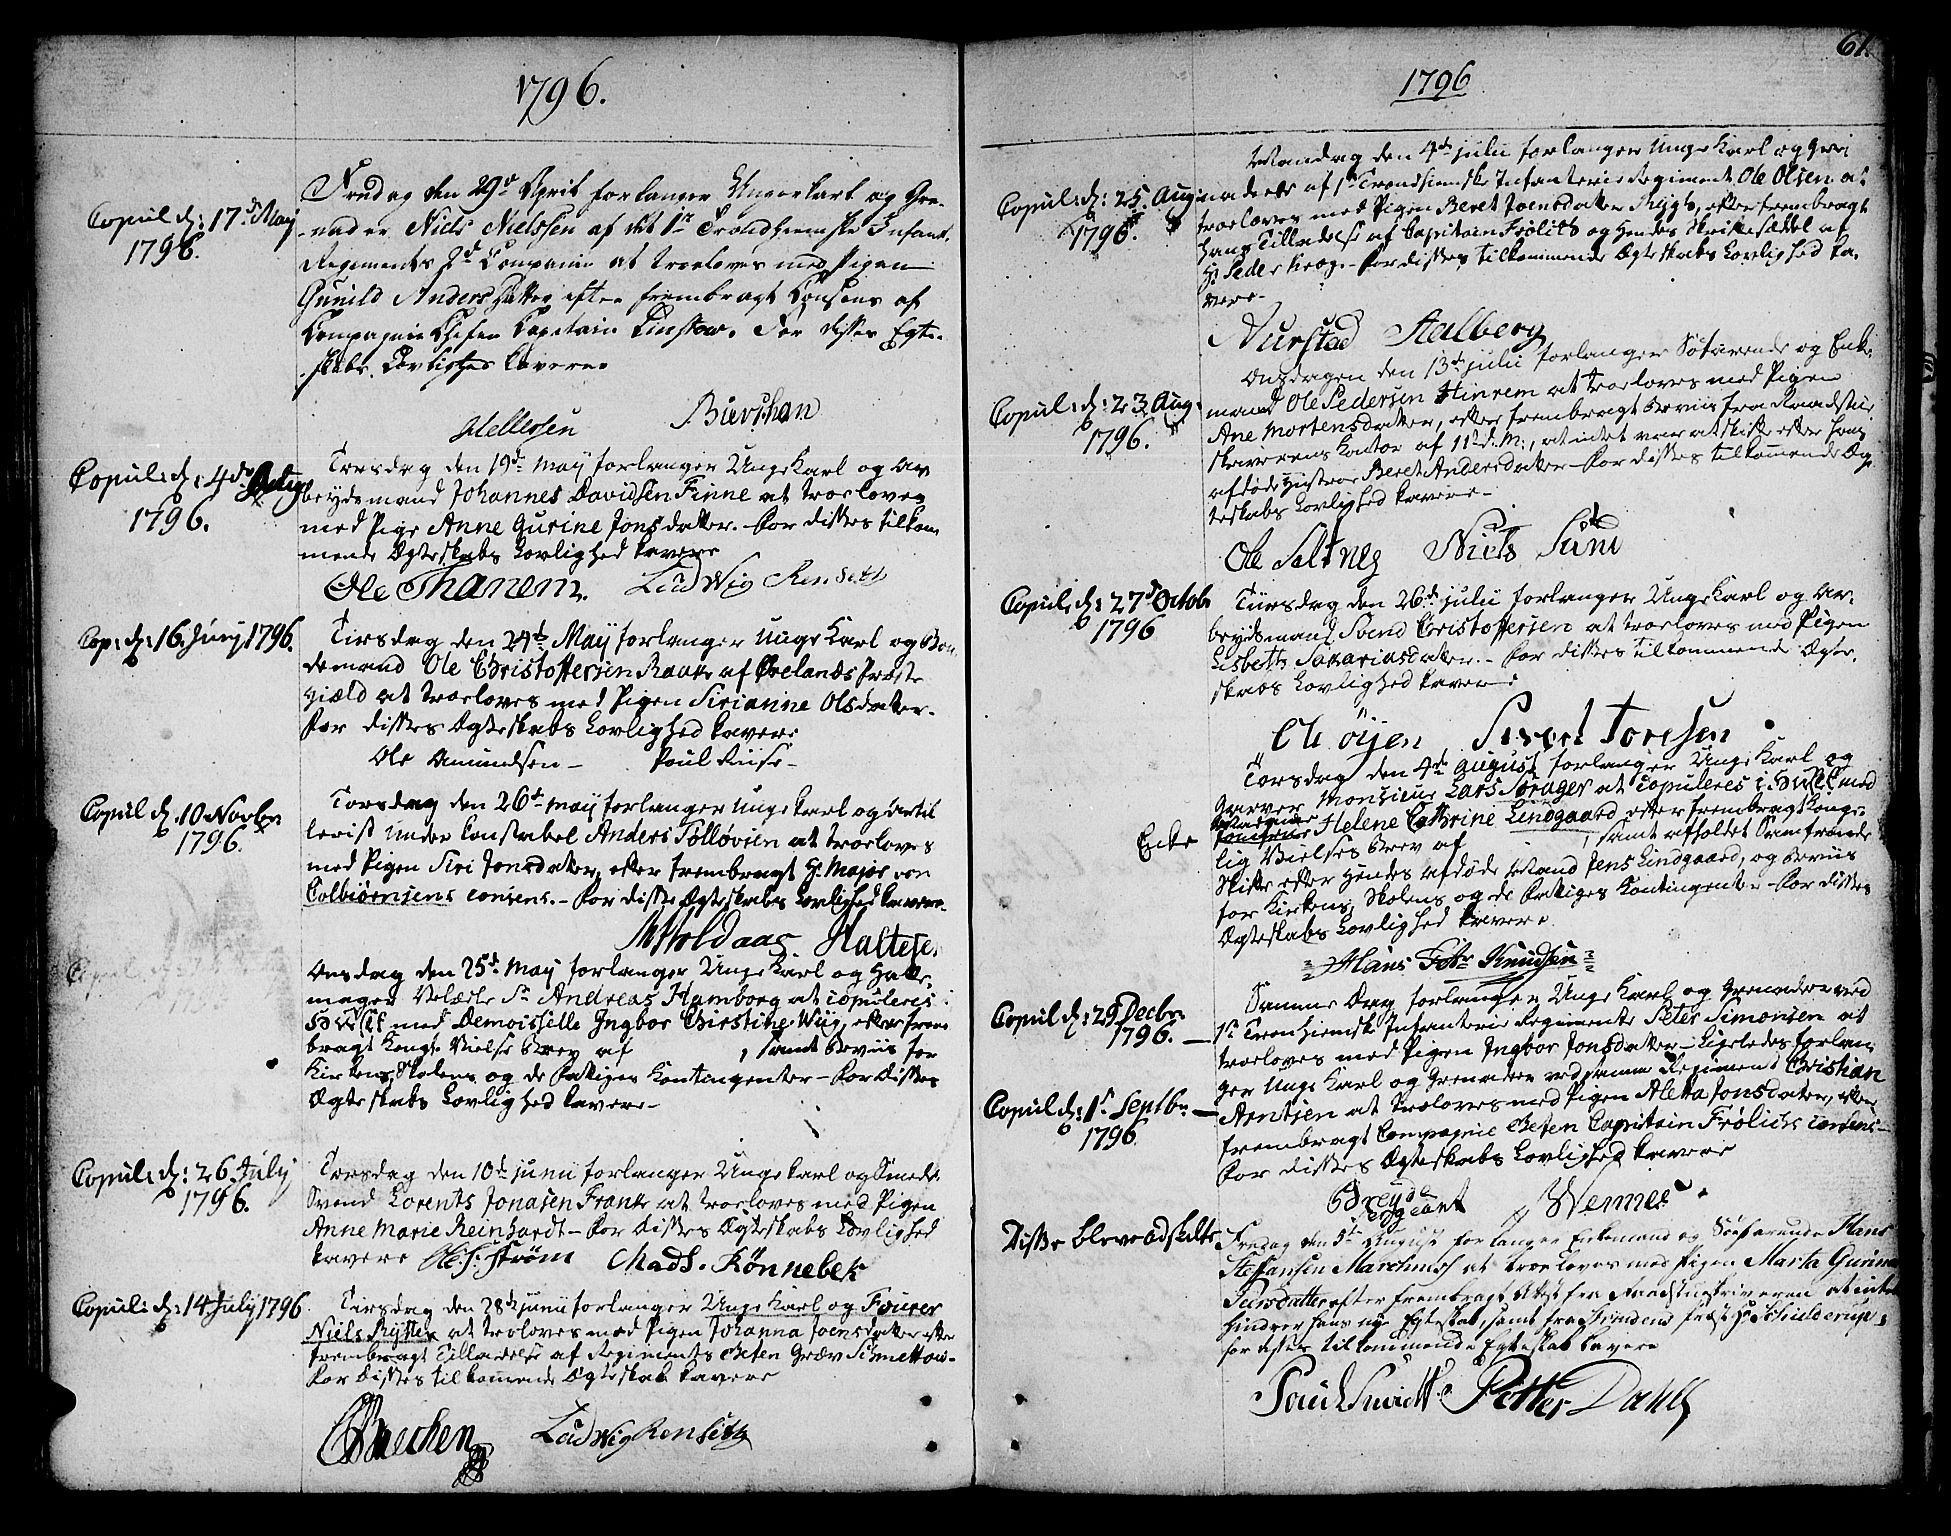 1796.
Copul. d: 17de May
1796.
Fredag den 29de April forlanger Ungekarl og Gre-
nadeer Niels Nielssen af det 1te Trondhiemske Infant.
Regiments 2de Compagnie at troeloves med Pigen
Gunild Anders Datter efter frembragt Consens af
Compagnie Chefen Capitain Linstow. For disses Egte-
skabs Lovlighed kavere
Hellesen Bierschan
Copul: d: 4de
1796.
Torsdag den 19de May forlanger Ungekarl og Ar-
beydsmand Johannes Davidsen Finne at troeloves
med Pige Anne Gurine Jonsdatter. For disses tilkom-
mende Ægteskabs Lovlighed kavere
Ole Thanem. Ludwig Rensett
Cop: d: 16 Juny 1796.
Tirsdag den 24de May forlanger unge Karl og Bon-
demand Ole Christoffersen af Ørelands Præste-
gield at troeloves med Pigen Sirianne Olsdatter.
For disses Ægteskabs Lovlighed kavere
Ole Amundsen - Poul Riise -
Copul d: 10 Novbr
1796.
Torsdag den 26de May forlanger unge Karl og Artil-
lerist under Constabel Anders at troeloves
med Pigen Siri Jonsdatter, efter frembragt H. Major von
Colbiørnsens consens. - For disses Ægteskabs Lovlighed kavere.
Holdaas Haltese.
Onsdag den 25de May forlanger Unge Karl og
mager Sr Andreas Hamborg at copuleres i
Huset med Demoisselle Ingbor Christine Wiig, efter frem-
bragt Kongl. Vielse Brev af , samt Beviis for
Kirkens, Skolens og de Fattiges Contingenter - For Disses
Ægteskabs Lovlighed kavere -
Copul: d: 26 July
1796.
Torsdag den 10de Junii forlanger Unge Karl og Smede-
Svend Lorents Jonasen Frank at troeloves med Pigen
Anne Marie Reinhardt - For Disses Ægteskabs Lovlighed
kavere Strøm Mads. Rønnebek
Copul: d: 14 July 1796
Tirsdag den 28de Junii forlanger Unge Karl og Fourer
Niels at troeloves med Pigen Johanna Joensdatter efter
frembragt Tilladelse af Regiments Chefen Greve Schmettow.
For Disses tilkommende Ægteskab kavere
Buchen Ludwig Rensett
61.
1796
Copul: d: 25 Aug
1796.
Mandag den 4de Julii forlanger unge Karl og Gre-
nadeer af 1te Trondhiemske Infanterie Regiment Ole Olsen at
troeloves med Pigen Beret Joensdatter Rygh, efter frembragt
hans Tilladelse af Capitain Frølich og hendes Skriftesæddel af
Hr Peder Krog. - For disses tilkommende Ægteskabs Lovlighed ka-
vere -
Nurstad Aalberg
Copul: d: 23 Aug.
1796.
Onsdagen den 13de Julii forlanger Søfarende og Enke-
mand Ole Pedersen Hinrem at troeloves med Pigen
Ane Mortensdatter, efter frembragt Beviis fra Raadstue-
skriverens Kontor af 11te d. M:, at intet var at skifte efter hans
afdøde Hustroe Beret Andersdatter - For disses tilkommende Æg-
teskabs Lovlighed kavere -
Ole Seltneg Niels Sund
Copul: d: 27de Octob
1796
Tiirsdag den 26de Julii forlanger Unge Karl og Ar-
beydsmand Svend Cristoffersen at troeloves med Pigen
Lisbeth Sakariasdatter. - For disses tilkommende Ægte-
skabs Lovlighed kavere:
Ole öijen Sivert Toresen
Torsdag den 4de August forlanger Unge Karl og
Garver Monsieur Lars Sprager at copuleres i Huset med
Enke
Madame
Helene Cathrine Lindgaard efter frembragt Konge-
lig Vielses Brev af , samt afholdet Samfrende
Skifte efter hendes afdøde Mand Jens Lindgaard, og Beviis
for Kirkens, Skolens og de Fattiges Kontingenter - For disses
Ægteskabs Lovlighed kavere
Hans Petr Knudsen
Copul d: 29 Decbr.
1796. -
Samme Dag forlanger Unge Karl og Grenadeer ved
1te Tronhiemske Infanterie Regimente Peter Simonsen at
troeloves med Pigen Ingbor Jonsdatter - Ligeledes forlan-
ger Unge Karl og Grenadeer ved samme Regiment Christian
Copul d: 1te Septbr. -
1796
Arntsen at troeloves med Pigen Aletta Jonsdatter, efter
frembragt Compagnie Chefen Capitain Frølichs Consens -
For disses Ægteskabs Lovlighed kavere
Brejde Wemmer
Sergeant
Disse bleve adskilte
Fredag den 5te August forlanger Enkemand og Søefarende Hans
Steffansen at troeloves med Pigen Marta Gurina
Datter efter frembragt Attest fra Raadstueskriveren at intet
hindrer hans nye Egteskab, samt fra Præst Hr Schielderup.
for disses tilkommende Egteskab kavere
Poul Smidt. Petter Dahll